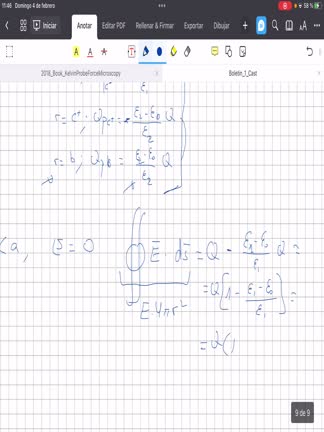 11:46 Domingo 4 de febrero
58 %
Iniciar Anotar Editar PDF Rellenar & Firmar Exportar Dibujar
2018_Book_KelvinProbeForceMicroscopy Boletin_1_Cast
ε₁
r = c⁺; Q_pc⁺ = - (ε₂-ε₀)/ε₂ Q
r = b; Q_pb = (ε₂-ε₀)/ε₂ Q
< a, = 0 ∯ E̅ · ds̅ = Q - (ε₁-ε₀)/ε₁ Q =
= Q [1 - (ε₁-ε₀)/ε₁] =
E·4πr²
= Q (
9 de 9